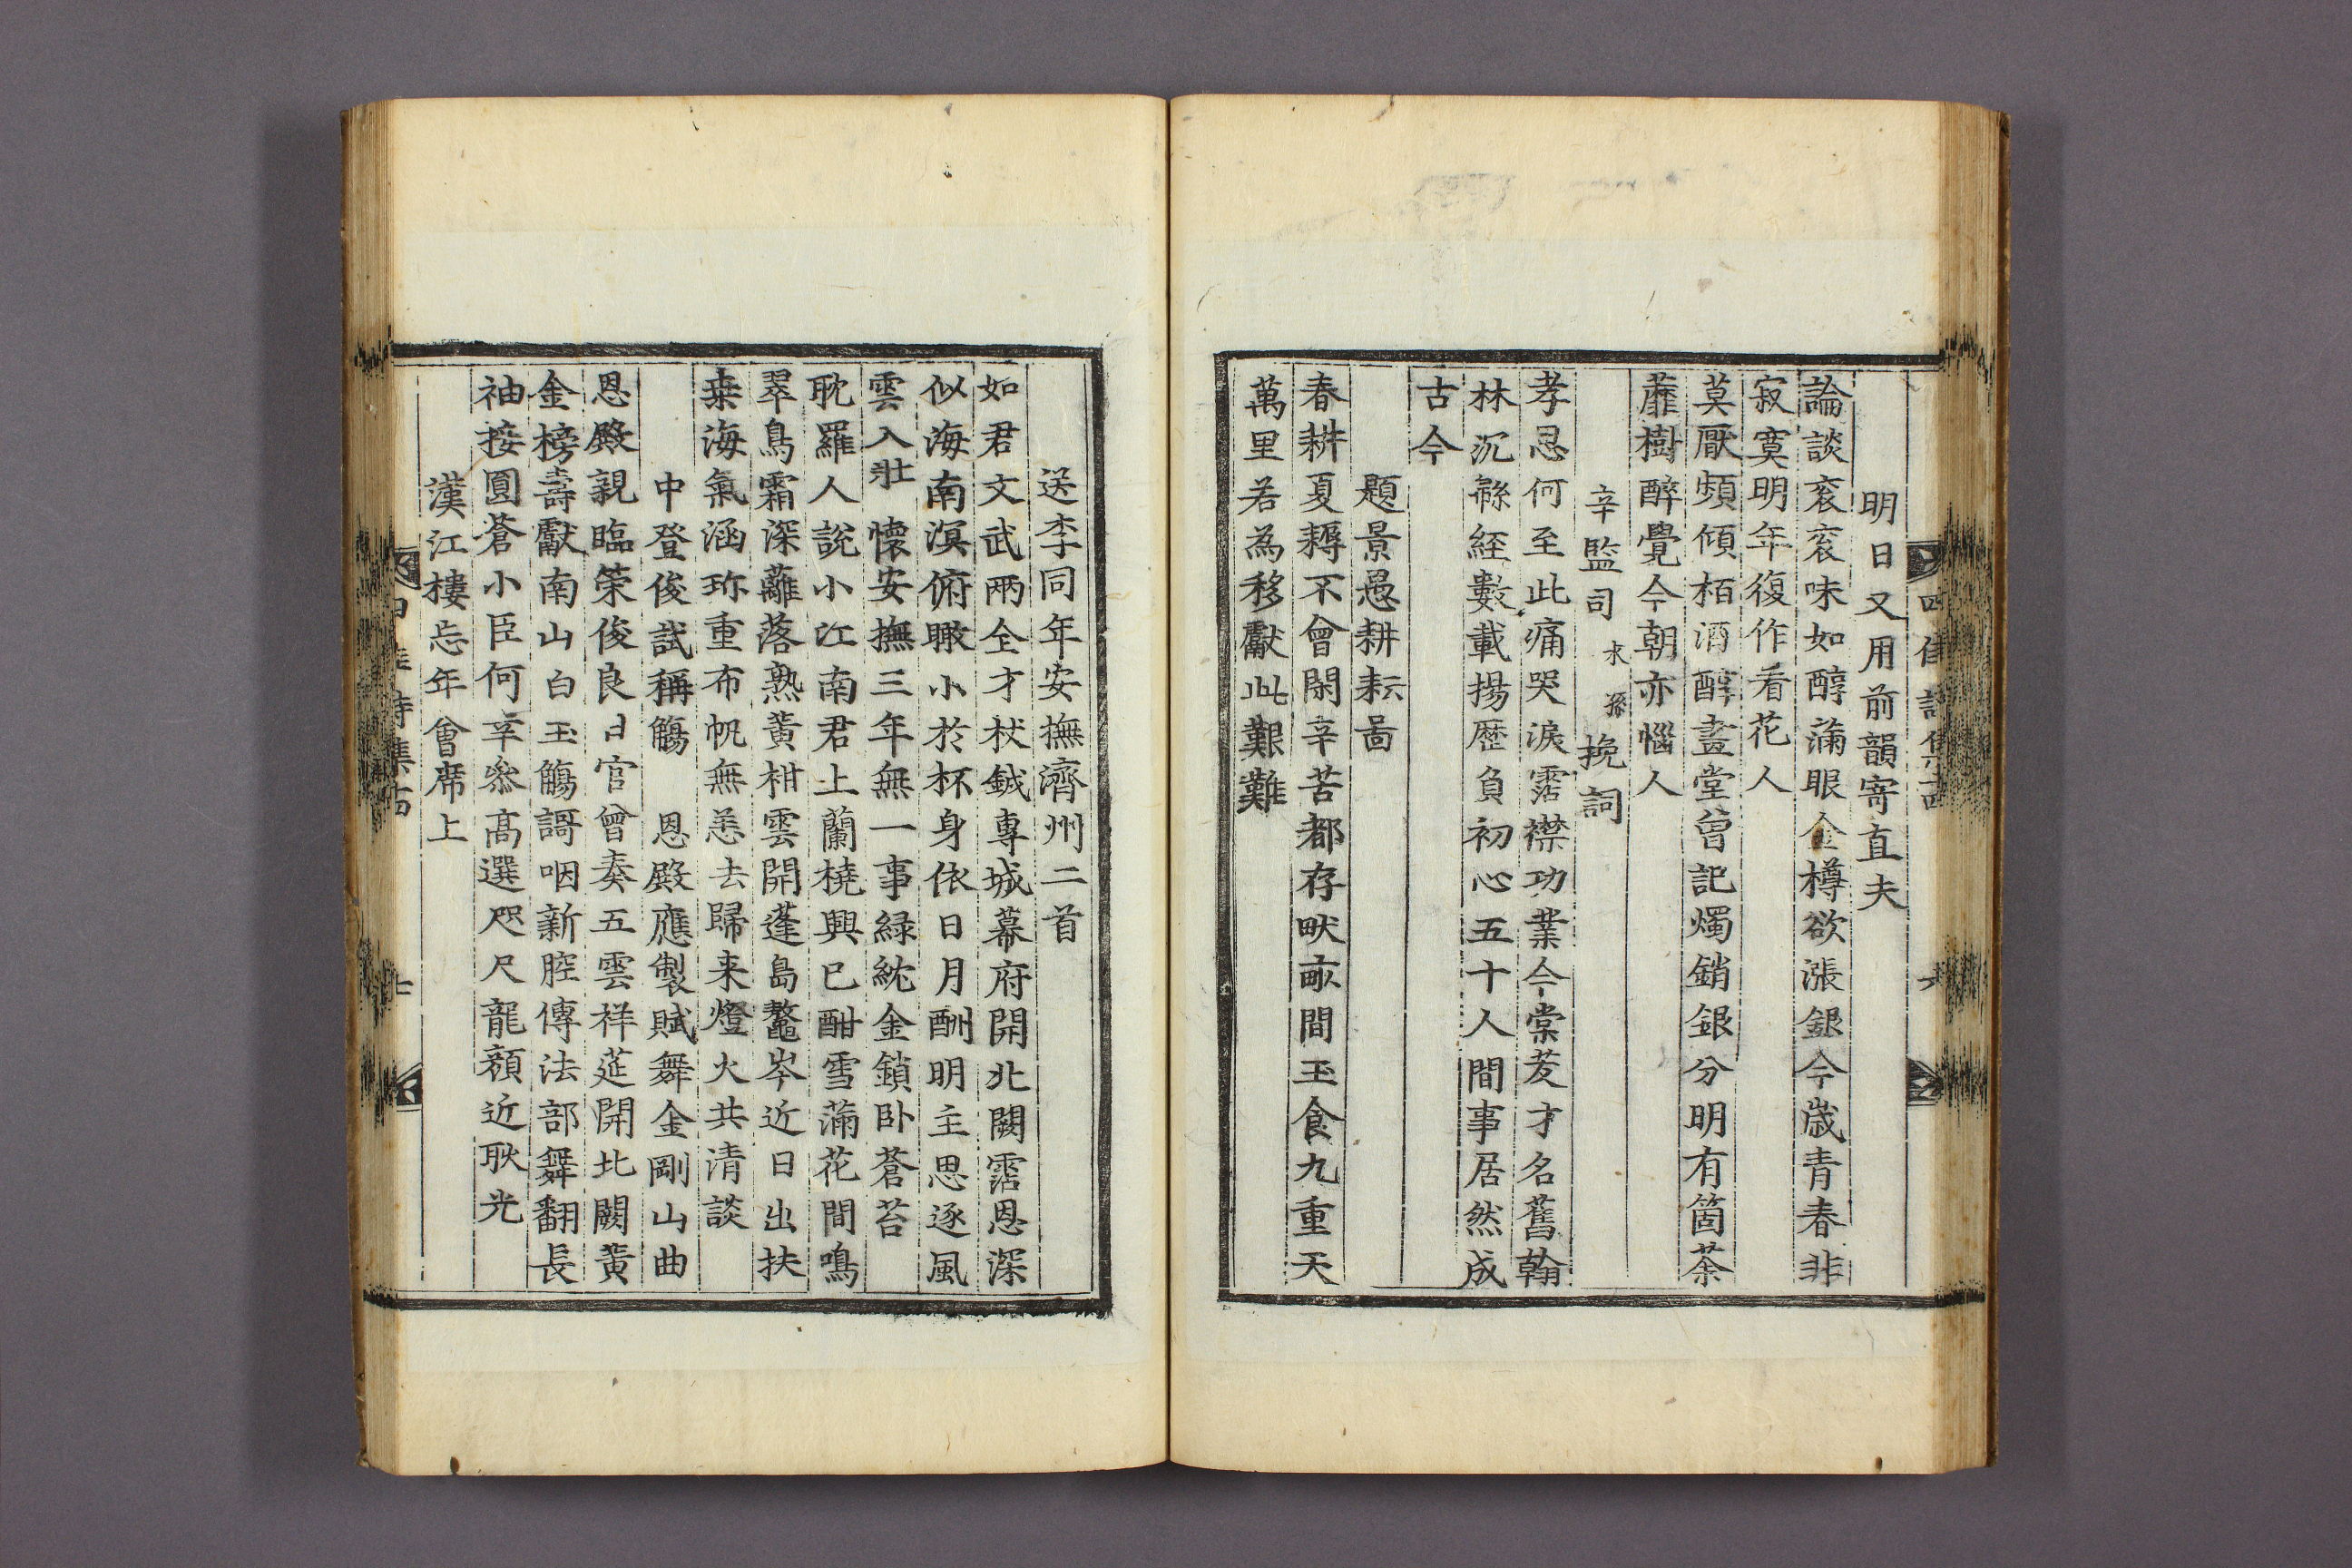 明日又用前韻寄直夫
論談衮衮味如醇滿眼金樽欲漲銀今歲青春非
寂寞明年復作看花人
莫厭頻傾栢酒醇畫堂曾記燭銷銀分明有箇荼
蘼樹醉覺今朝亦惱人
辛監司永孫挽詞
孝忌何至此痛哭淚霑襟功業今棠茇才名舊翰
林沉緜經數載揚歷負初心五十人間事居然成
古今
題景愚耕耘啚
春耕夏耨不曾閑辛苦都存畎畝間玉食九重天
萬里若為移獻此艱難
送李同年安撫濟州二首
如君文武兩全才杖鉞專城幕府開北闕霑恩深
似海南溟俯瞰小於杯身依日月酬明主思逐風
雲入壯懷安撫三年無一事緑沈金鎖卧蒼苔
耽羅人說小江南君上蘭橈興已酣雪滿花間鳴
翠鳥霜深蘺落熟黃柑雲開蓬島鼇岑近日出扶
桒海氣涵珎重布帆無恙去歸来燈火共清談
中登俊試稱觴 恩殿應製賦舞金剛山曲
恩殿親臨策俊良日官曾奏五雲祥莚開北闕黃
金榜壽獻南山白玉觴謌咽新腔傳法部舞翻長
袖接圓蒼小臣何幸叅髙選咫尺龍顔近耿光
漢江樓忘年會席上